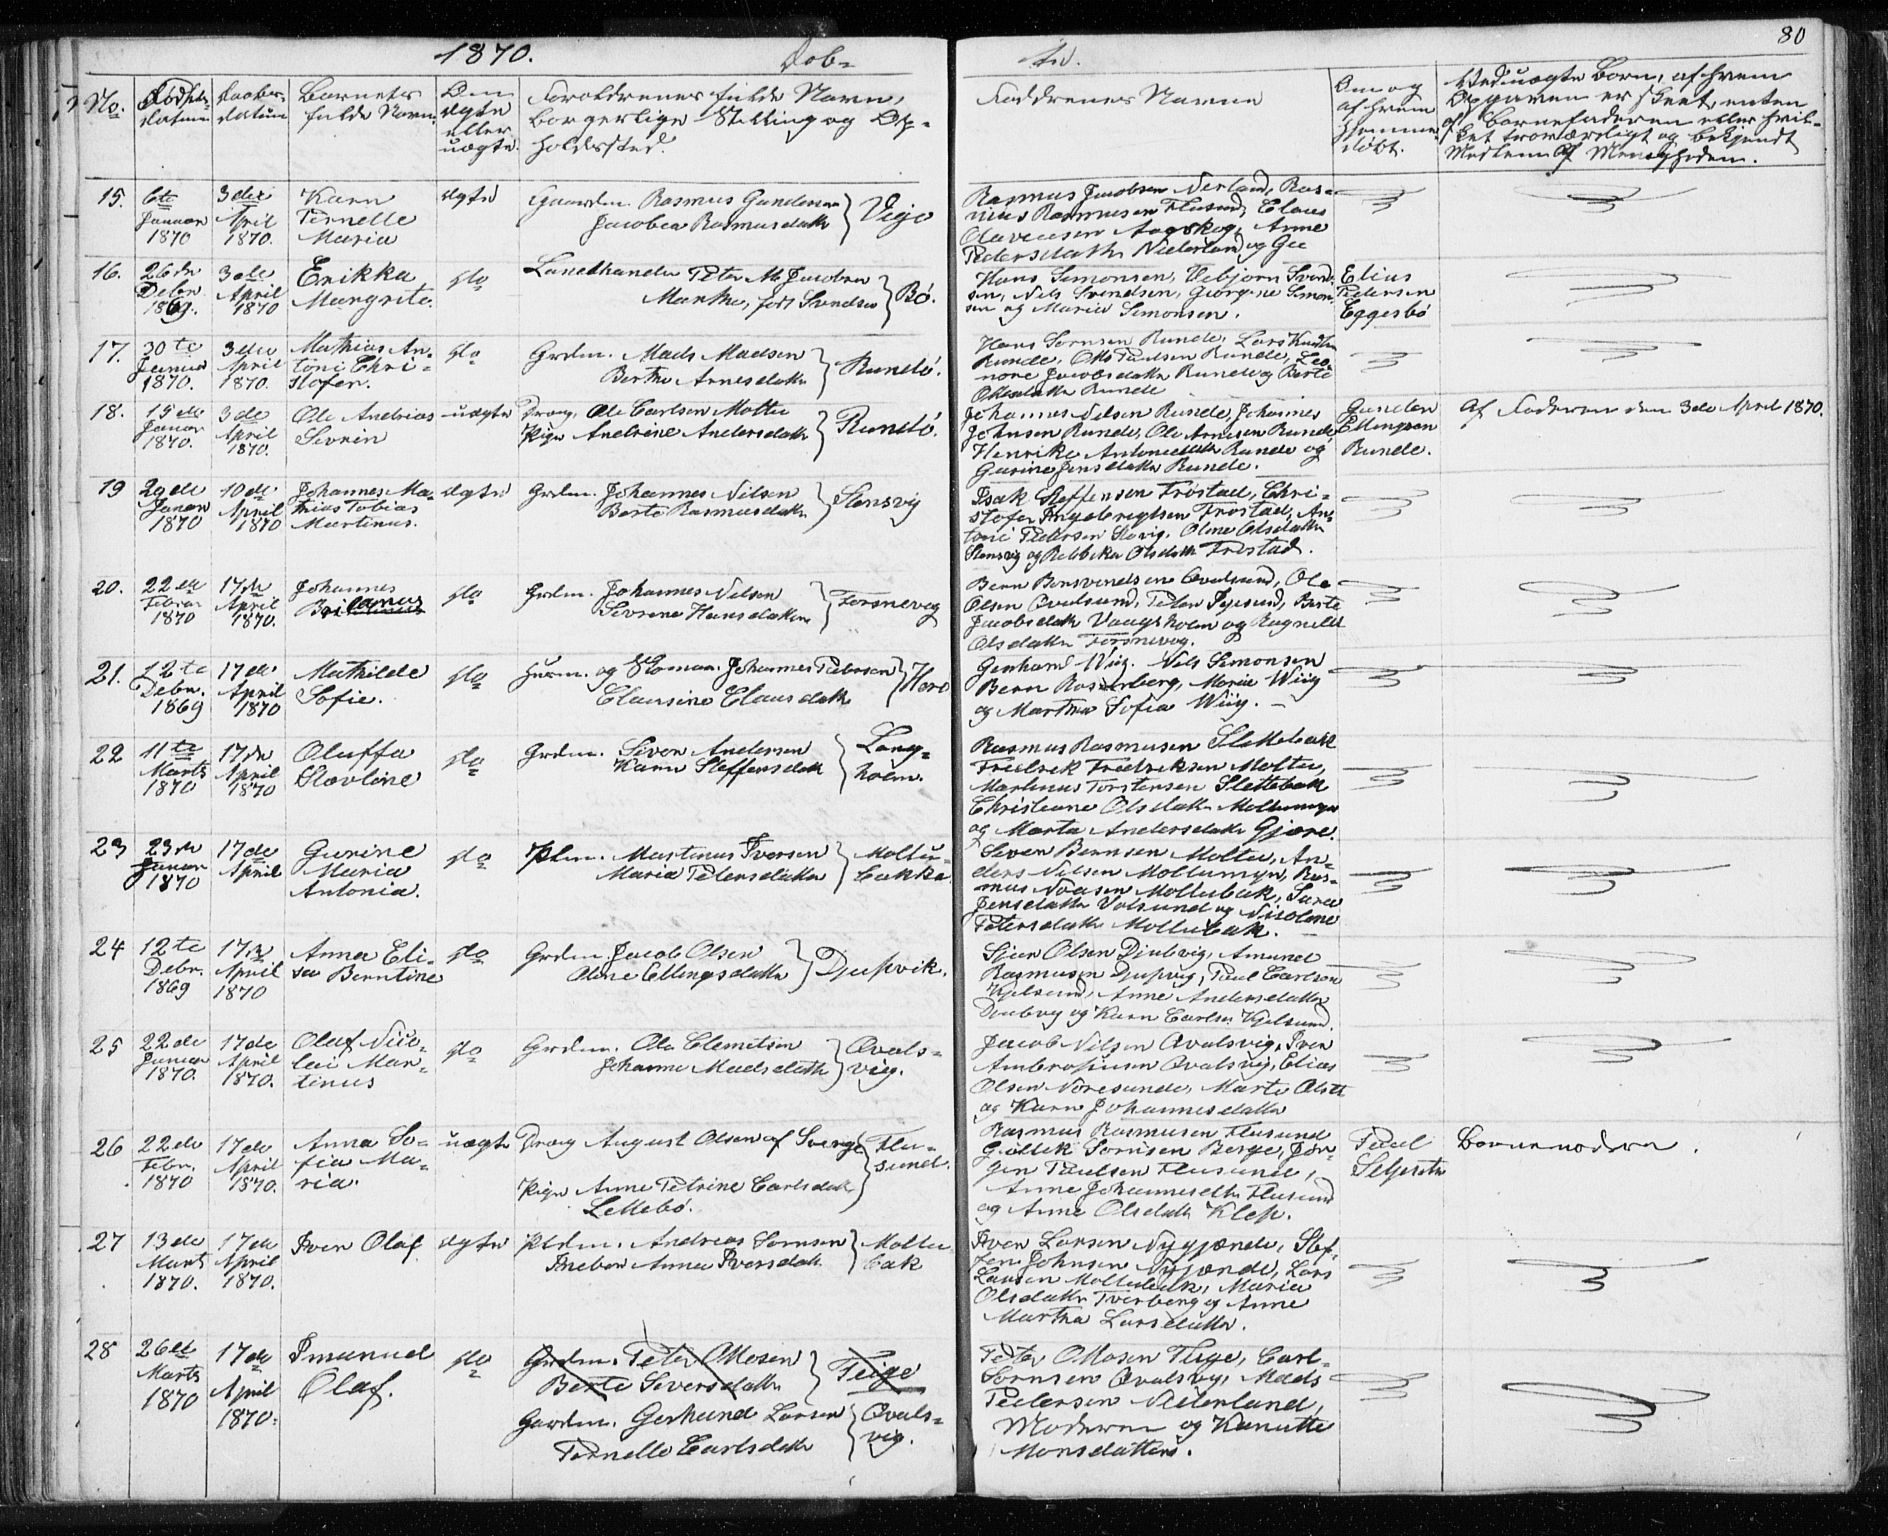 1870. Døb-
te.
80
No.
Fødsels-
datum
Daabs-
datum
Barnets
fulde Navn.
Om
ægte
eller
uægte.
Forældrenes fulde Navn,
borgerlige Stilling og Op-
holdssted.
Faddrenes Navne
Om og
af hvem
hjemme-
døbt.
Ved uægte Børn, af hvem
Opgaven er skeet, enten
af Barnefaderen eller hvil-
ket troværdigt og bekjendt
Medlem af Menigheden.
15.
6te
Januar
1870
3die
April
1870.
Karn
Pernelle
Maria
ægte
Gaardm. Rasmus Gundersen
Jacobea Rasmusdatter
Vigo
Rasmus Jacobsen Nerland, Ras-
mus Rasmusen Flusund, Claus
Olavesen Aagskog, Anne
Pedersdatter Nederland og
16.
26de
Debr.
1869.
3die
April
1870
Enikka
Margrite.
do
Landhandler Peter M. Jacobsen
Marthe, født Svendsen
Bø.
Hans Simonsen, Vebjørn Svend-
sen, Nils Svendsen, Giørgine Simon-
sen og Maria Simonsen.
Elius
Pedersen
Eggesbø
17.
30te
Januar
1870.
3die
April
1870.
Mathias An-
toni Chri-
stofer.
do
Grdm. Mads Madsen
Berthe Arnesdatter
Rundø.
Hans Sørnsen Runde, Lars Knudsen
Runde, Otto Paulsen Runde, Leo-
nore Jacobsdatter Runde og Berte
Ottosdatter Runde
18.
15de
Januar
1870.
3die
April
1870.
Ole Andreas
Sevrin
uægte
Dreng Ole Carlsen Moltu
Pige Andrine Andersdatter
Rundø.
Johannes Nilsen Runde, Johannes
Johnsen Runde, Ole Arnesen Runde,
Henrike Antonsdatter Runde og
Gurine Jensdatter Runde.
Gunder
Ellingsen
Runde.
Af Faderen den 3die April 1870.
19
29de
Januar
1870
10de
April
1870
Johannes Ma-
thias Tobias
Martinus.
ægte
Grdm. Johannes Nilsen
Berte Rasmusdatter
Stensvig
Isak Steffensen Frøstad, Chri-
stofer Ingebrigtsen Frøstad, An-
toni Pedersen Stovig, Oline Olsdatter
Stensvig og Rebbeka Olsdatter Frøstad.
20.
22de
Febrar
1870
17de
April
1870.
Johannes
do
Grdm. Johannes Nilsen
Sevrine Hansdatter
Forsnevog
Bern Bernsvendsen Qvalsund, Ole
Olsen Qvalsund, Peter Igesund, Berte
Jacobsdatter Vaagsholm og Ragnild
Olsdatter Forsnevog.
21.
12te
Debr.
1869
17de
April
1870
Mathilde
Sofie.
do
Husm. og Skomar. Johannes Pedersen
Clausine Clausdatter
Herø
Gerhard Wiig. Nils Simonsen
Bern Rosenberg, Maria Wiig
og Martha Sofia Wiig.
22
11te
Marts
1870
17de
April
1870
Oluffa
Slavline
do
Grdm. Siver Andersen
Karn Steffensdatter
Lang-
holm.
Rasmus Rasmusen Slettebak
Fredrek Fredreksen Moltu,
Martinus Torstensen Slettebak
Christiane Olsdatter Moltumyr
og Marta Andersdatter Gjære.
23
23de
Januar
1870
17de
April
Gurine
Maria
Antonia.
do
Plm. Martinus Iversen
Maria Petersdatter
Moltu-
bakke
Siver Bernsen Moltu, An-
ders Nilsen Moltumyr, Ras-
mus Noasen Moltubak, Sara
Jensdatter Volsund og Nicoline
Petersdatter Moltubak.
24
12te
Debr.
1869
17de
April
1870
Anna Eli-
sa Berntine
do
Grdm. Jacob Olsen
Oline Ellingsdatter
Djupvik.
Sjur Olsen Djubvig, Amund
Rasmusen Djupvig, Paul Carlson
Kjelsund, Anne Andersdatter
Djubvig og Karn Carlsen Kjelsund.
25
22de
Januar
1870.
17de
April
1870.
Olaf Nico-
lai Mar-
tinus
do
Grdm. Ole Clemetsen
Johanne Madsdatter
Qvals-
vieg.
Jacob Nilsen Qvalsvig, Iver
Ambrosiusen Qvalsvig, Elias
Olsen Noresunde, Marte Olsdt
og Karn Johannesdatter
26
22de
Febr.
1870
17de
April
1870.
Anna So-
fia Ma-
ria.
uægte
Dreng August Olsen af Sverge
Pige Anne Petrine Carlsdatter
Lettebø.
Flu-
sund.
Rasmus Rasmusen Flusund
Gullik Sørnsen Berge, Jør-
gen Paulsen Flusund,
Anne Johannesdtr Flusund
og Anne Olsdatter Klep.
Paul
Barnemodern.
27
13de
Marts
1870.
17de
April
1870.
Iver Olaf
ægte
Pldm. Andreas Sørnsen
Ingebor Anna Iversdatter
Moltu-
bak
Iver Larsen Nygjærde, Stef-
fen Johnsen Nygjærde, Lars
Larsen Moltubak, Maria
Olsdatter Tverberg og Anne
Martha Larsdatter.
28
26de
Marts
1870
17de
April
1870.
Imanuel
Olaf.
do
Grdm. Peter Ottosen
Berte Siversdatter
Teige
Gardm. Gerhard Larsen
Pernelle Carlsdatter
Qvals-
vig.
Peter Ottosen Teige, Carl
Sørnsen Qvalsvig, Mads
Pedersen Nederland,
Moderen og Kanutte
Monsdatter.